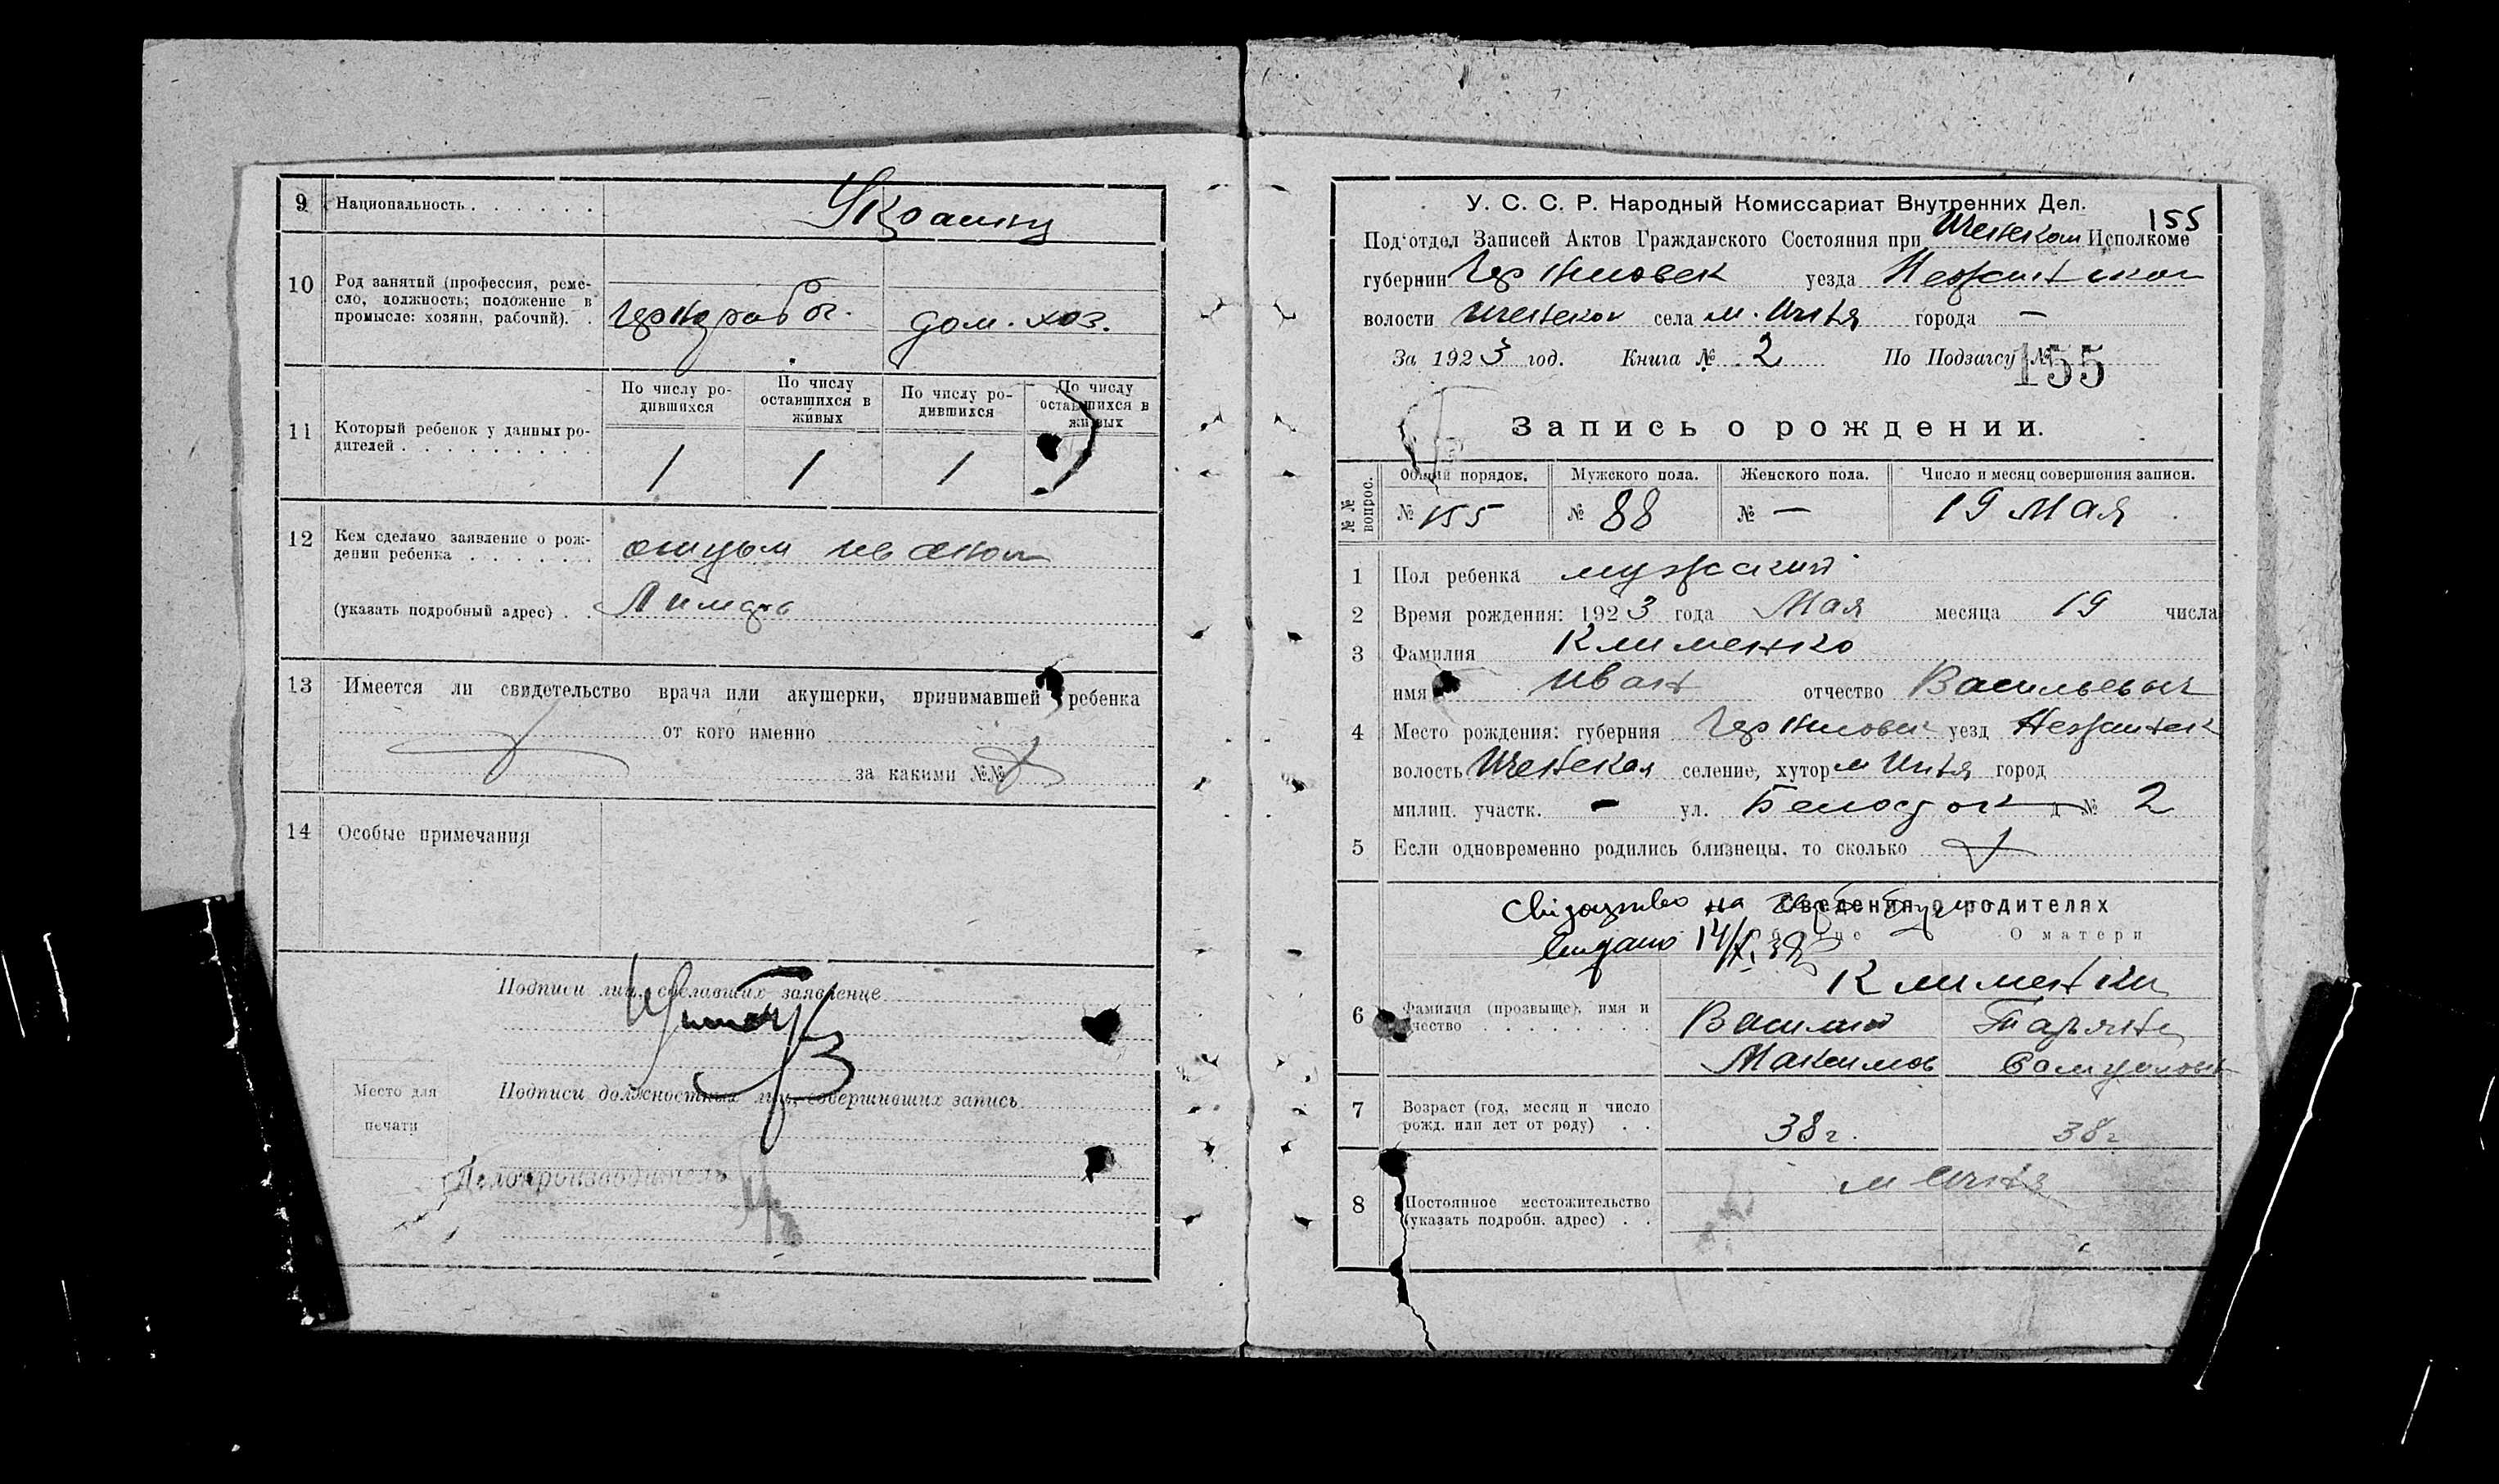 9 Национальность . . . . . . Украинцы
10 Род занятий (профессия, реме-
сло, должность; положение в
промысле: хозяин, рабочий). . чернораб. дом. хоз.
11 Который ребенок у данных ро-
дителей . . . . . . . . . .
По числу ро-
дившихся
По числу
оставшихся в
живых
По числу ро-
дившихся
По числу
оставшихся в
живых
1 1 1
12 Кем сделано заявление о рож-
дении ребенка . . . . . . отцом
(указать подробный адрес) . .
13 Имеется ли свидетельство врача или акушерки, принимавшей ребенка
от кого именно
за какими №№
14 Особые примечания
Подписи лиц, сделавших заявление
Место для
печати
Подписи должностных лиц, совершивших запись
Делопроизводитель
У. С. С. Р. Народный Комиссариат Внутренних Дел.
155
Под'отдел Записей Актов Гражданского Состояния при Ичнском Исполкоме
губернии Черниговск уезда Нежинском
волости Ичнской села м. Ичня города —
За 1923 год. Книга № 2 По Подзагсу № 155
Запись о рождении.
№№ вопрос.
Общий порядок. Мужского пола. Женского пола. Число и месяц совершения записи.
№ 155 № 88 № — 19 Мая
1 Пол ребенка мужской
2 Время рождения: 1923 года Мая месяца 19 числа
3 Фамилия Клименко
имя Иван отчество Васильевич
4 Место рождения: губерния Черниговск уезд Нежинск
волость Ичнская селение, хутор м Ичня город
милиц. участк. — ул. д № 2
5 Если одновременно родились близнецы, то сколько
Сведения о родителях
Свідоцтво на
видано 14/X 38
О матери
6 Фамилия (прозвыще), имя и
отчество . . . . . . . . .
Клименки
Василий Татьяна
Максимов Самуилов
7 Возраст (год, месяц и число
рожд. или лет от роду) . . 38 г. 38 г
8 Постоянное местожительство
(указать подробн. адрес) . . м Ичня